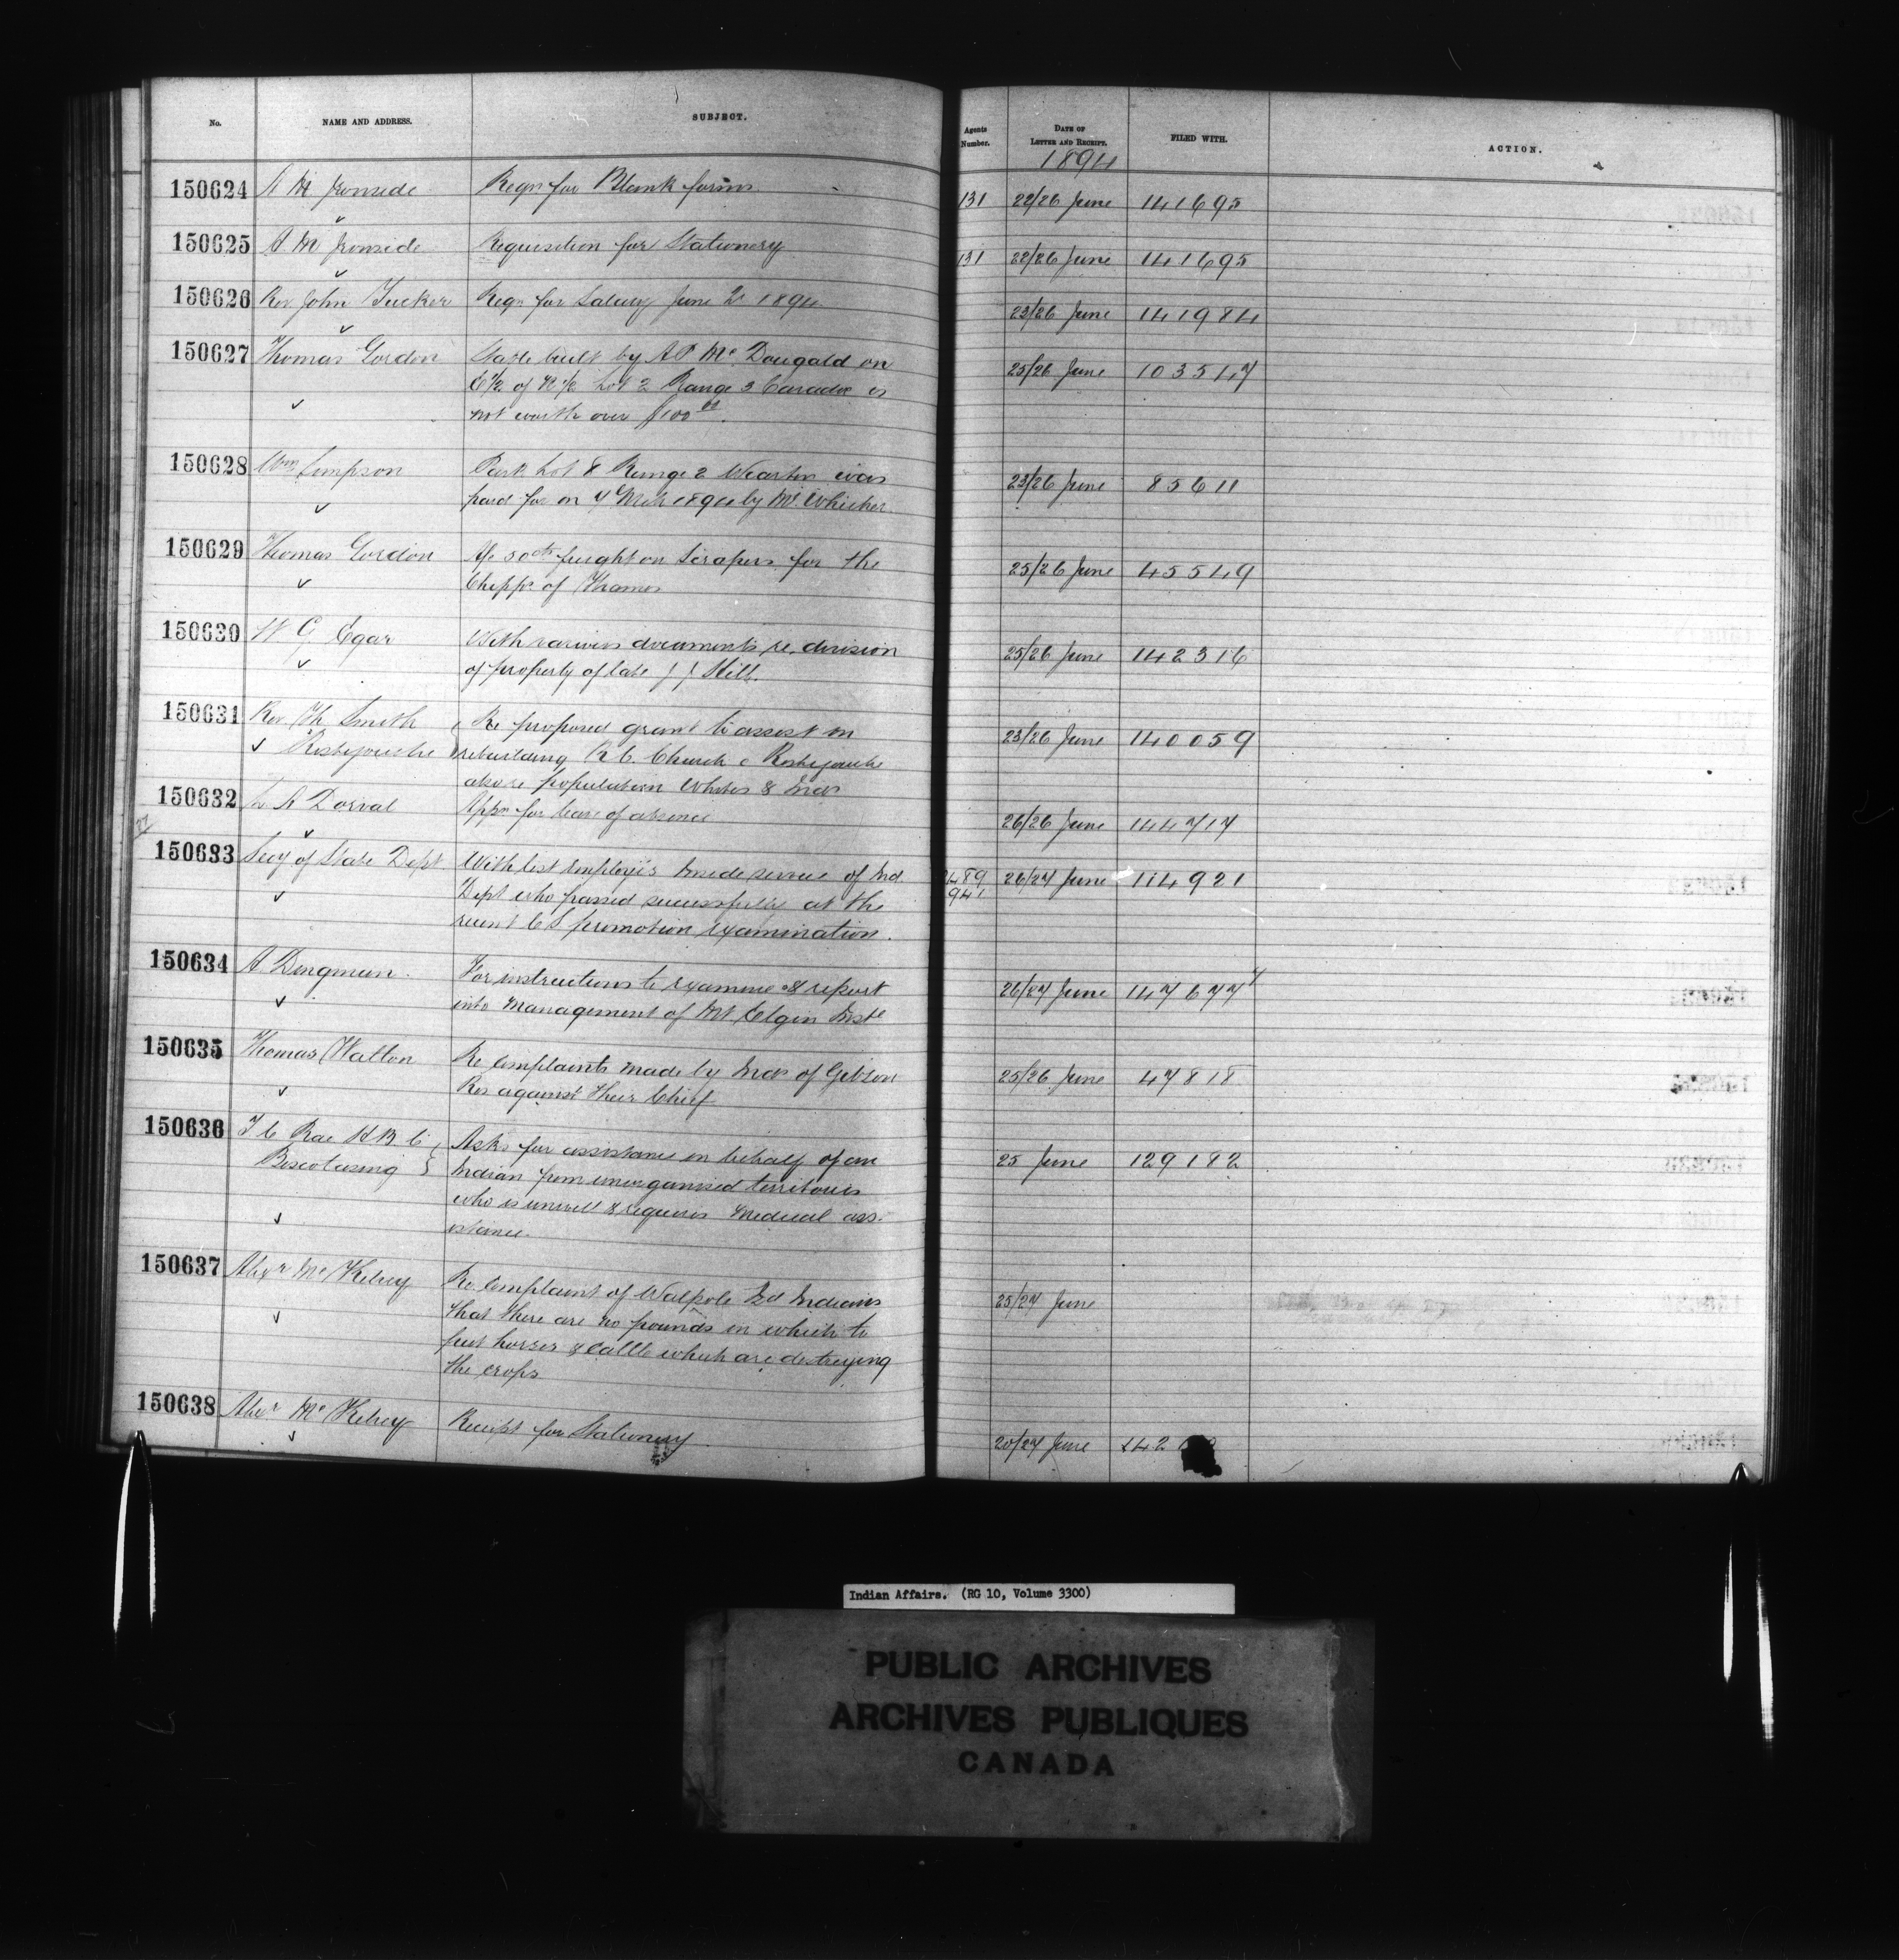 No. NAME AND ADDRESS. SUBJECT. Agents Number. DATE OF LETTER AND RECEIPT. FILED WITH. ACTION.
1894
150624 A M Ironside Reqn for Blank forms 131 22/26 June 141695
150625 A. M Ironside Requisition for Stationery 131 22/26 June 141695
150626 Rev John Tucker Reqn for Salary June 1894 23/26 June 141984
150627 Thomas Gordon Stable built by A P Mc Dougald on 25/26 June 103547
E½ of N½ Lot 2 Range 3 Caradoc is
not worth over $100 00.
150628 Wm Simpson Park Lot 8 Range 2 Wiarton was 23/26 June 85611
paid for on 7 Mch 1894 by Mr Whicher
150629 Thomas Gordon Re 50cts freight on Scrapers for the 25/26 June 45549
Chipps of Thames
150630 W G Egar With various documents re. division 25/26 June 142316
of property of late J J Hill.
150631 Rev Th Smith Re proposed grant to assist in 23/26 June 140059
Restigouche rebuilding R C. Church @ Restigouche
also re population Whites & Inds
150632 L A Dorval Appn for leave of absence 26/26 June 144717
27
150633 Secy of State Dept With list employés Inside service of Ind. 489 26/27 June 114921
Dept who passed successfully at the 941
recent C S promotion examination.
150634 A. Dingman. For instructions to examine & report 26/27 June 147677
into management of Mt. Elgin Inste
150635 Thomas Walton Re complaints made by Inds of Gibson 25/26 June 47818
Res against their Chief
150636 T C Rae H.B.C. Asks for assistance in behalf of an 25 June 129182
Biscotasing Indian from unorganised territories
who is unwell & requires medical ass-
istance.
150637 Alexr Mc Kelvey Re complaint of Walpole Isd Indians 25/27 June
that there are no pounds in which to
put horses & cattle which are destroying
the crops
150638 Alexr Mc Kelvey Receipt for Stationery. 20/27 June 142
Indian Affairs. (RG 10, Volume 3300)
PUBLIC ARCHIVES
ARCHIVES PUBLIQUES
CANADA